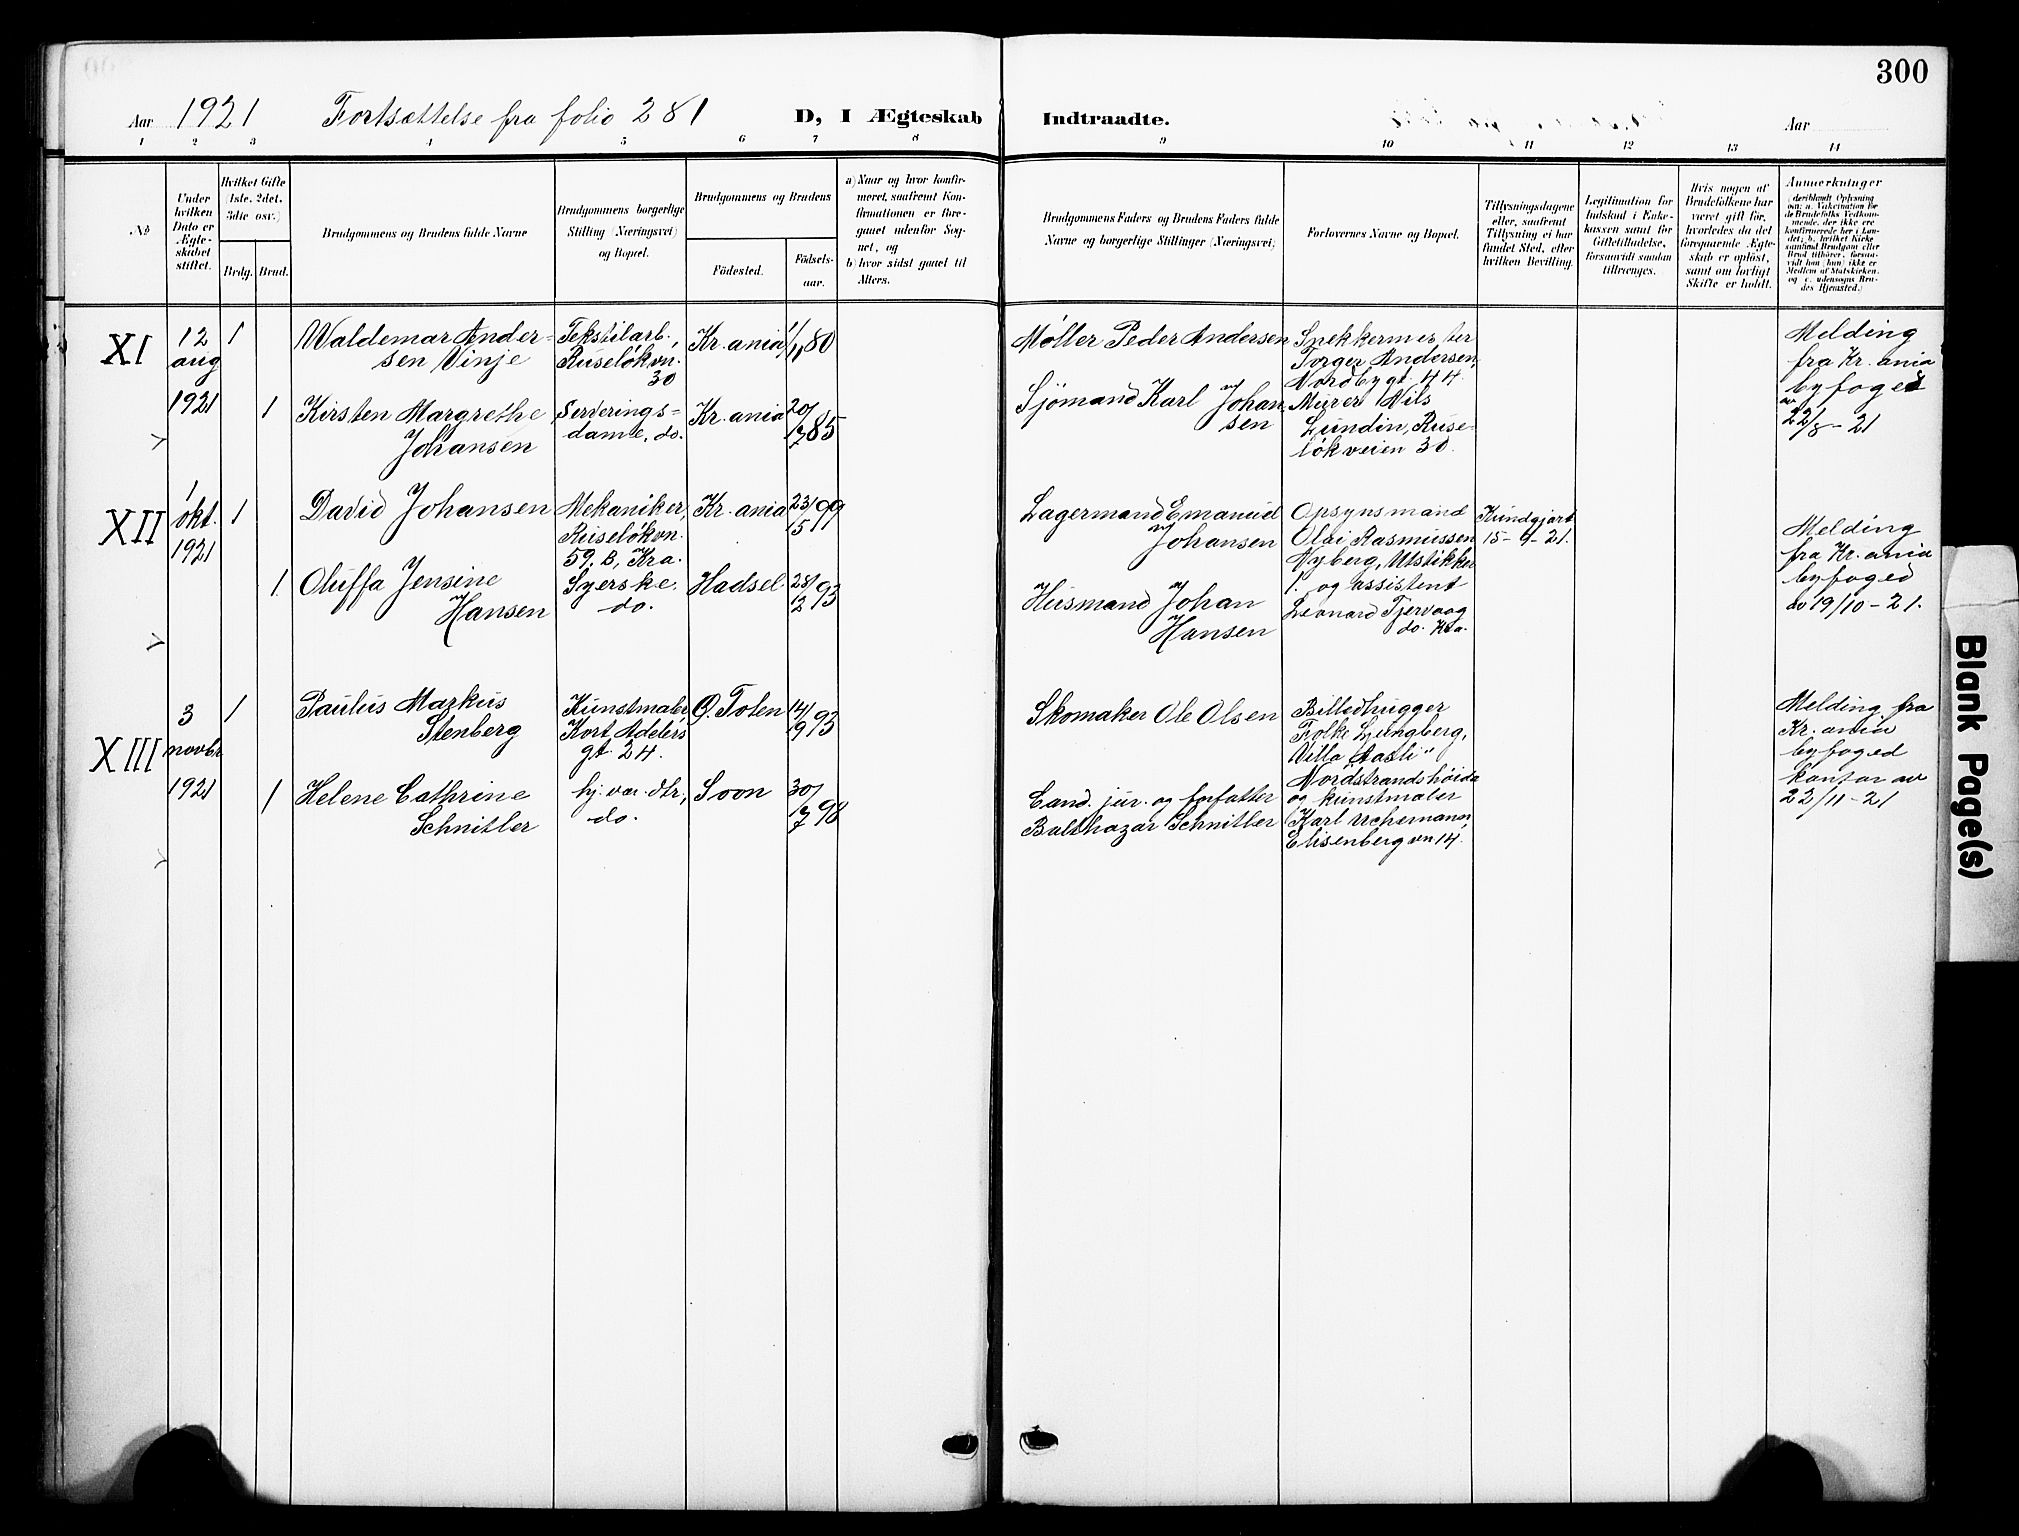 300
Aar 1921 Fortsættelse fra folio 281 D, I Ægteskab Indtraadte. Aar
1 2 3 4 5 6 7 8 9 10 11 12 13 14
No
Under hvilken Dato er Ægteskabet stiftet.
Hvilket Gifte (1ste. 2det. 3die osv.)
Brdg. Brud.
Brudgommens og Brudens fulde Navne
Brudgommens borgerlige Stilling (Næringsvei) og Bopæl.
Brudgommens og Brudens
Födested.
Födsels-
aar.
a) Naar og hvor konfir-
meret, saafremt Kon-
firmationen er fore-
gaaet udenfor Sog-
net, og
b) hvor sidst gaaet til
Alters.
Brudgommens Faders og Brudens Faders fulde
Navne og borgerlige Stillinger (Næringsvei)
Forlovernes Navne og Bopæl.
Tillysningsdagene
eller, saafremt
Tillysning ei har
fundet Sted, efter
hvilken Bevilling.
Legitimation for
Indskud i Enke-
kassen samt for
Giftetilladelse,
forsaavidt saadan
tiltrænges.
Hvis nogen af
Brudefolkene har
været gift för,
hvorledes da det
foregaaende Ægte-
skab er oplöst,
samt om lovligt
Skifte er holdt.
Anmærkninger
(deriblandt Oplysning
om: a. Vakcination for
de Brudefolks Vedkom-
mende, der ikke ere
konfirmerede her i Lan-
det; b. hvilket Kirke-
samfund Brudgom eller
Brud tilhörer, forsaa-
vidt han (hun) ikke er
Medlem af Statskirken.
og c. udensogns Bru-
des Hjemsted.)
XI
12
aug
1921
1
Waldemar Ander-
sen Vinje
Tekstilarb.,
Ruseløkvn.
30
Kr.ania
80
Møller Peder Andersen
Snekkermester
Torger Andersen,
Nordbygt. 44.
Melding
fra Kr.ania
byfoged
av
22/8-21
1
Kirsten Margrethe
Johansen
Serverings-
dame, do.
Kr.ania
20/
7 85
Sjømand Karl Johan-
sen
Murer Nils
Lundin, Ruse-
løkveien 30.
XII
1
okt.
1921
1
David Johansen
Mekaniker,
Ruseløkvn.
59. B, Kra.
Kr.ania
23/
5 99
Lagermand Emanuel
Johansen
Opsynsmand
Olai Rasmussen
Nyberg, Utstikker
1. og assistent
Leonard Tjervaag
do. Kra.
Kundgjort
15-9-21.
Melding
fra Kr.ania
byfoged
av 19/10-21.
1.
Oluffa Jensine
Hansen
Syerske.
do.
Hadsel
28/
2 93
Husmand Johan
Hansen
XIII
3
novbr.
1921
1
Paulus Markus
Stenberg
Kunstmaler
Kort Adelers
gt. 24.
Ø. Toten
14/
9 93
Skomaker Ole Olsen
Billedhugger
Folke Ljungberg,
Villa "Aasli"
Nordstrandshøida
og kunstmaler
Karl Uchermann,
Elisenbergvn 14.
Melding fra
Kr.ania
byfoged
kontor av
22/11-21
1
Helene Cathrine
Schnitler
hj. vær. dtr.,
do.
Soon
30/
7 98
Cand. jur. og forfatter
Balthazar Schnitler
Blank Page(s)